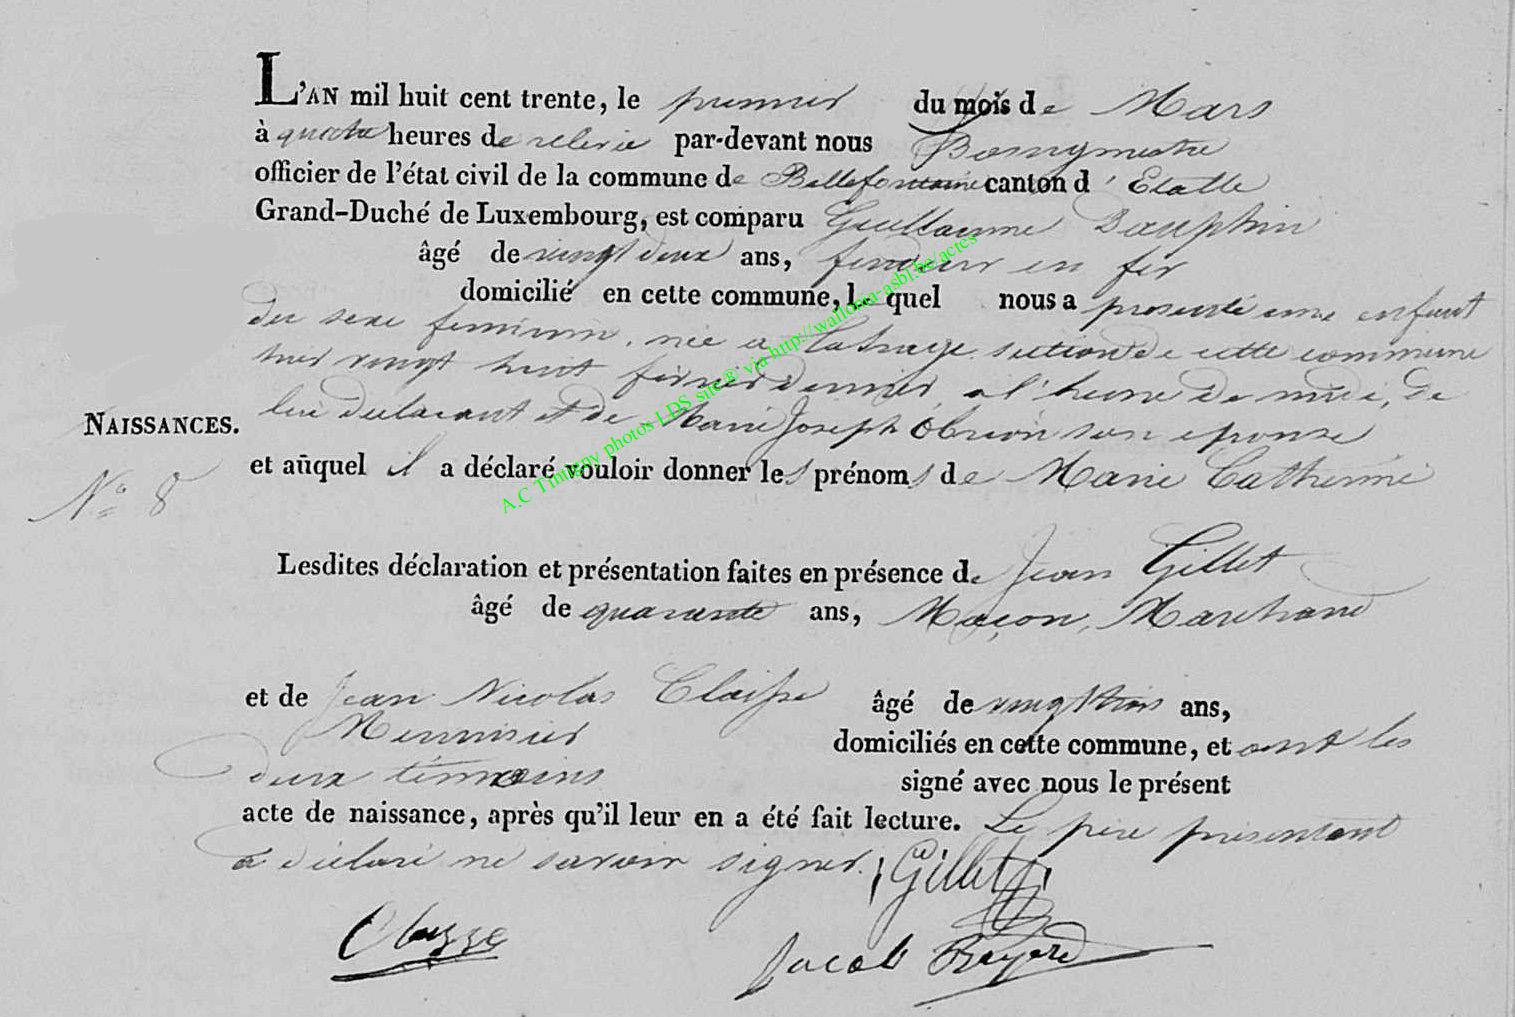 L'AN mil huit cent trente, le premier du mois de Mars
à quatre heures de relevée par-devant nous Bourgmestre
officier de l'état civil de la commune de Bellefontaine canton d'Etalle
Grand-Duché de Luxembourg, est comparu Guillaume Dauphin
âgé de vingt deux ans, fendeur en fer
domicilié en cette commune, le quel nous a presenté une enfant
du sexe feminin, née a Lahage section de cette commune
hier vingt huit fevrier dernier, a l'heure de midi, de
lui declarant et de Marie Joseph son epouse
NAISSANCES.
et auquel il a déclaré vouloir donner les prénoms de Marie Catherine
N° 8
Lesdites déclaration et présentation faites en présence de Jean Gillet
âgé de quarante ans, Maçon, Marchand
et de Jean Nicolas Claisse âgé de vingt trois ans,
Menuisier domiciliés en cette commune, et ont les
deux témoins signé avec nous le présent
acte de naissance, après qu'il leur en a été fait lecture. Le père présentant
a déclaré ne savoir signer. Gillet
Jacob
A.C Tintigny photos LDS site® via http://wallonia-asbl.be/actes